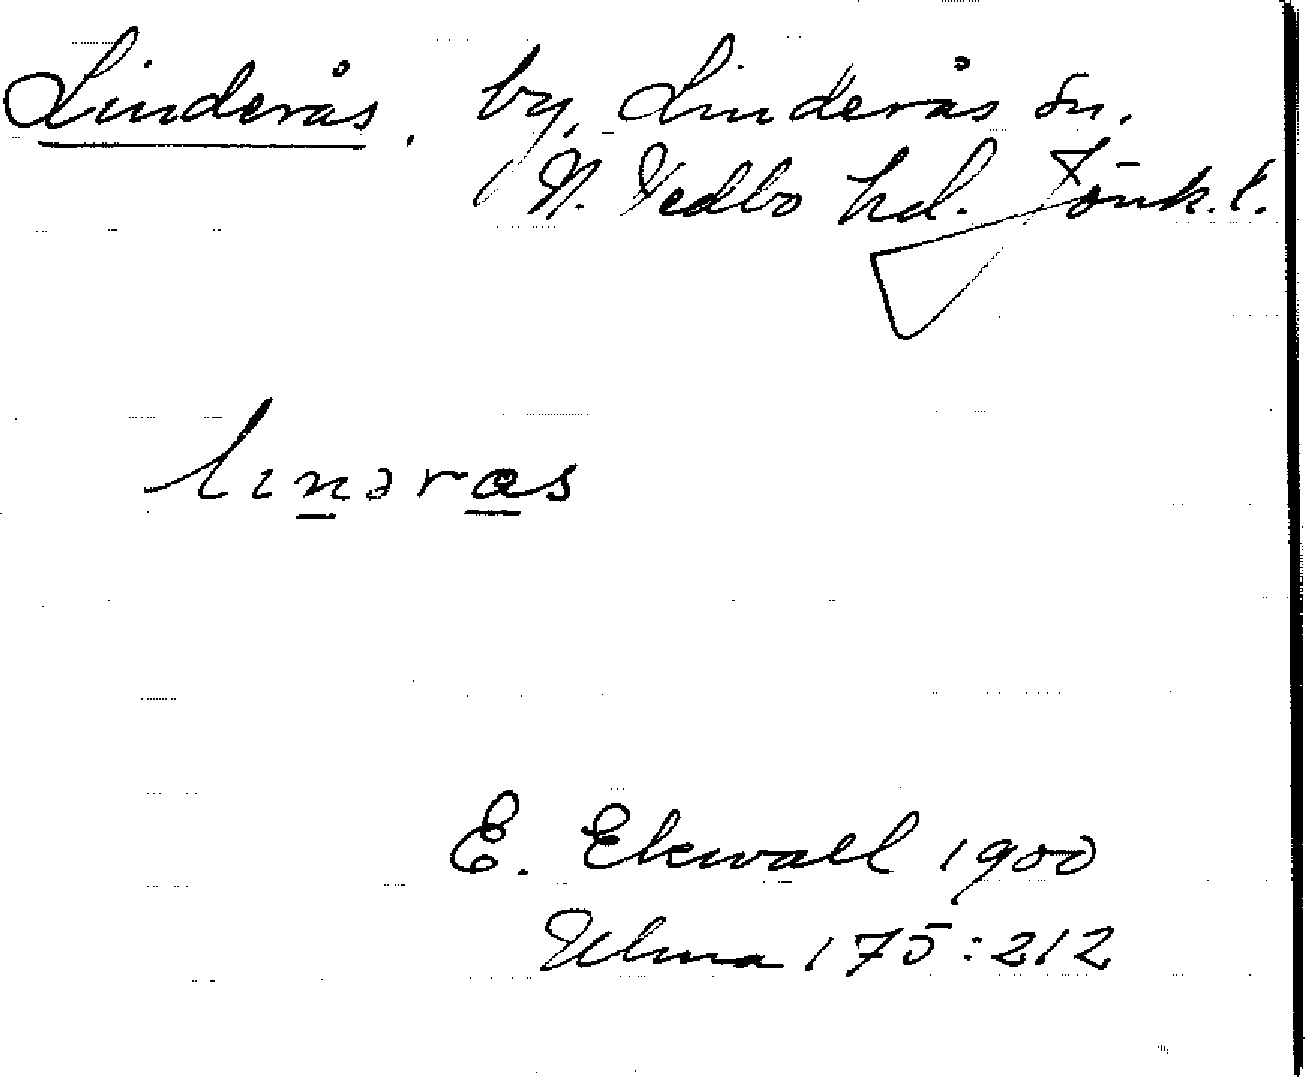 Linderås, by, Linderås sn.
N. Vedbo hd. Jönk. l.
linəras
E. Ekwall 1900
Ulma 175:212